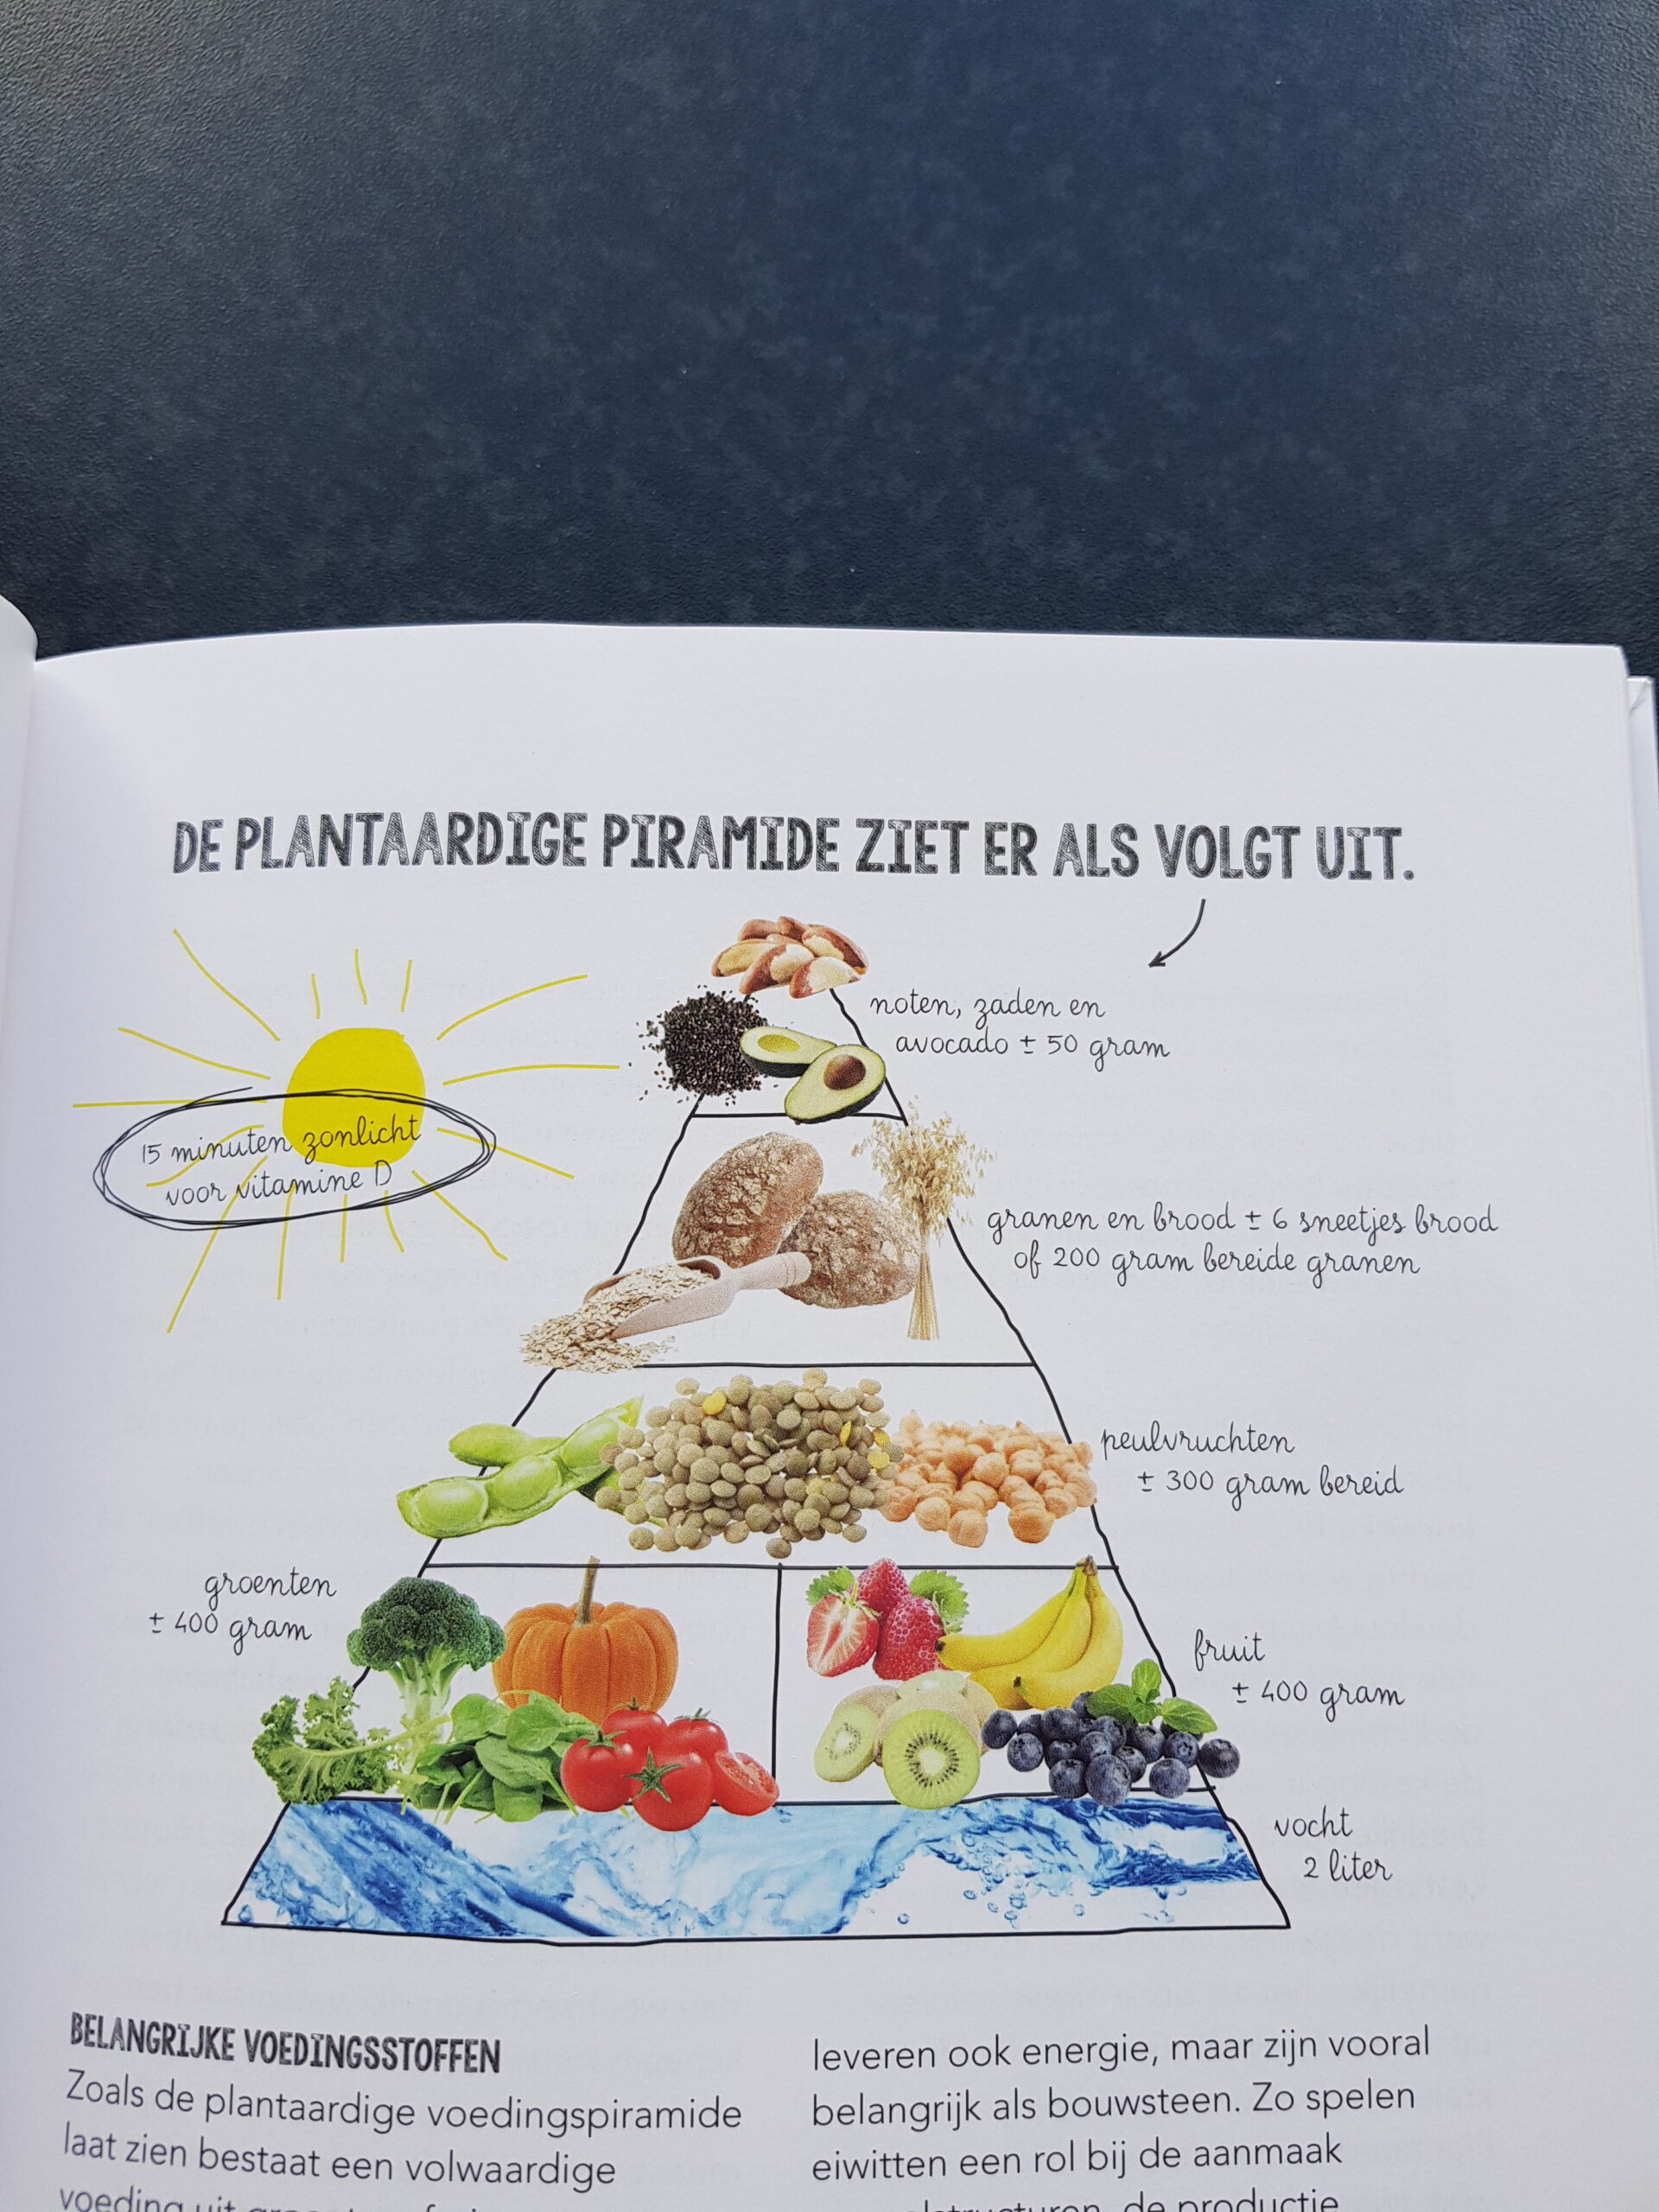 DE PLANTAARDIGE PIRAMIDE ZIET ER ALS VOLGT UIT.
noten, zaden en
avocado ± 50 gram
15 minuten zonlicht
voor vitamine D
granen en brood ± 6 sneetjes brood
of 200 gram bereide granen
peulvruchten
± 300 gram bereid
groenten
± 400 gram
fruit
± 400 gram
vocht
2 liter
BELANGRIJKE VOEDINGSSTOFFEN
Zoals de plantaardige voedingspiramide
laat zien bestaat een volwaardige
voeding uit
leveren ook energie, maar zijn vooral
belangrijk als bouwsteen. Zo spelen
eiwitten een rol bij de aanmaak
de productie